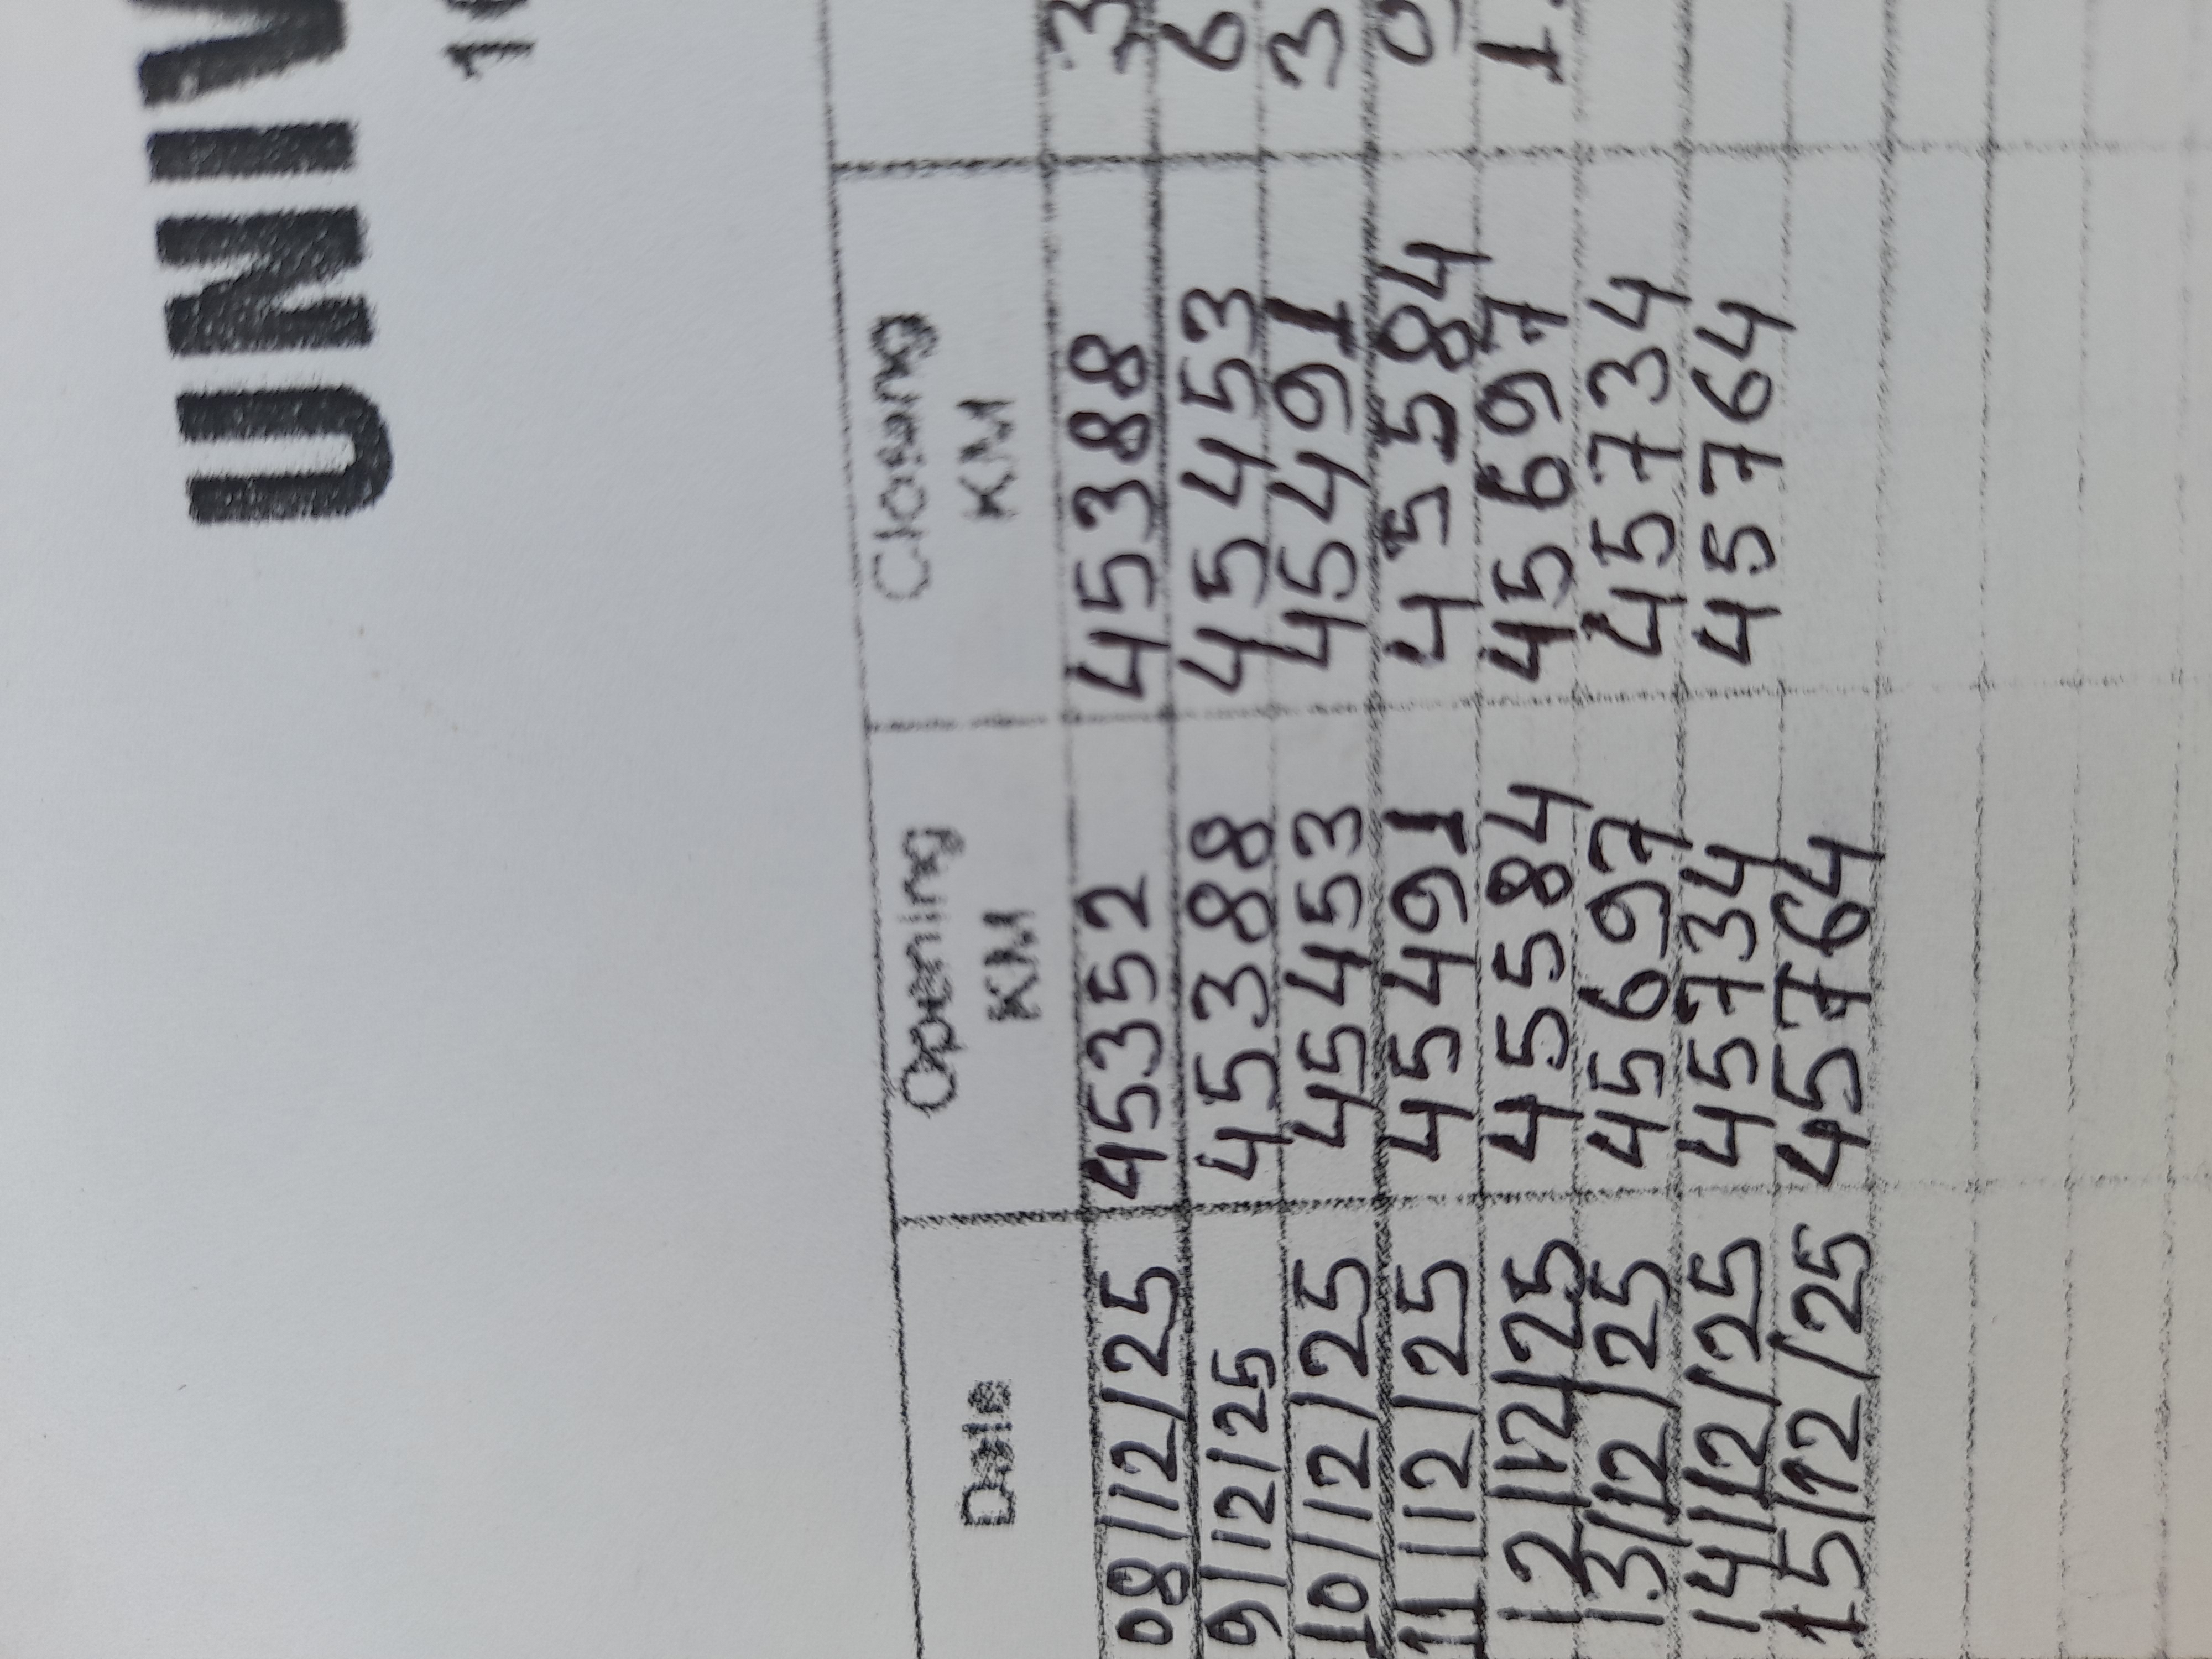 UNIV
Date Opening KM Closing KM
08/12/25 45352 45388 3
9/12/25 45388 45453 6
10/12/25 45453 45491 3
11/12/25 45491 45584
12/12/25 45584 45697 1
13/12/25 45697 45734
14/12/25 45734 45764
15/12/25 45764